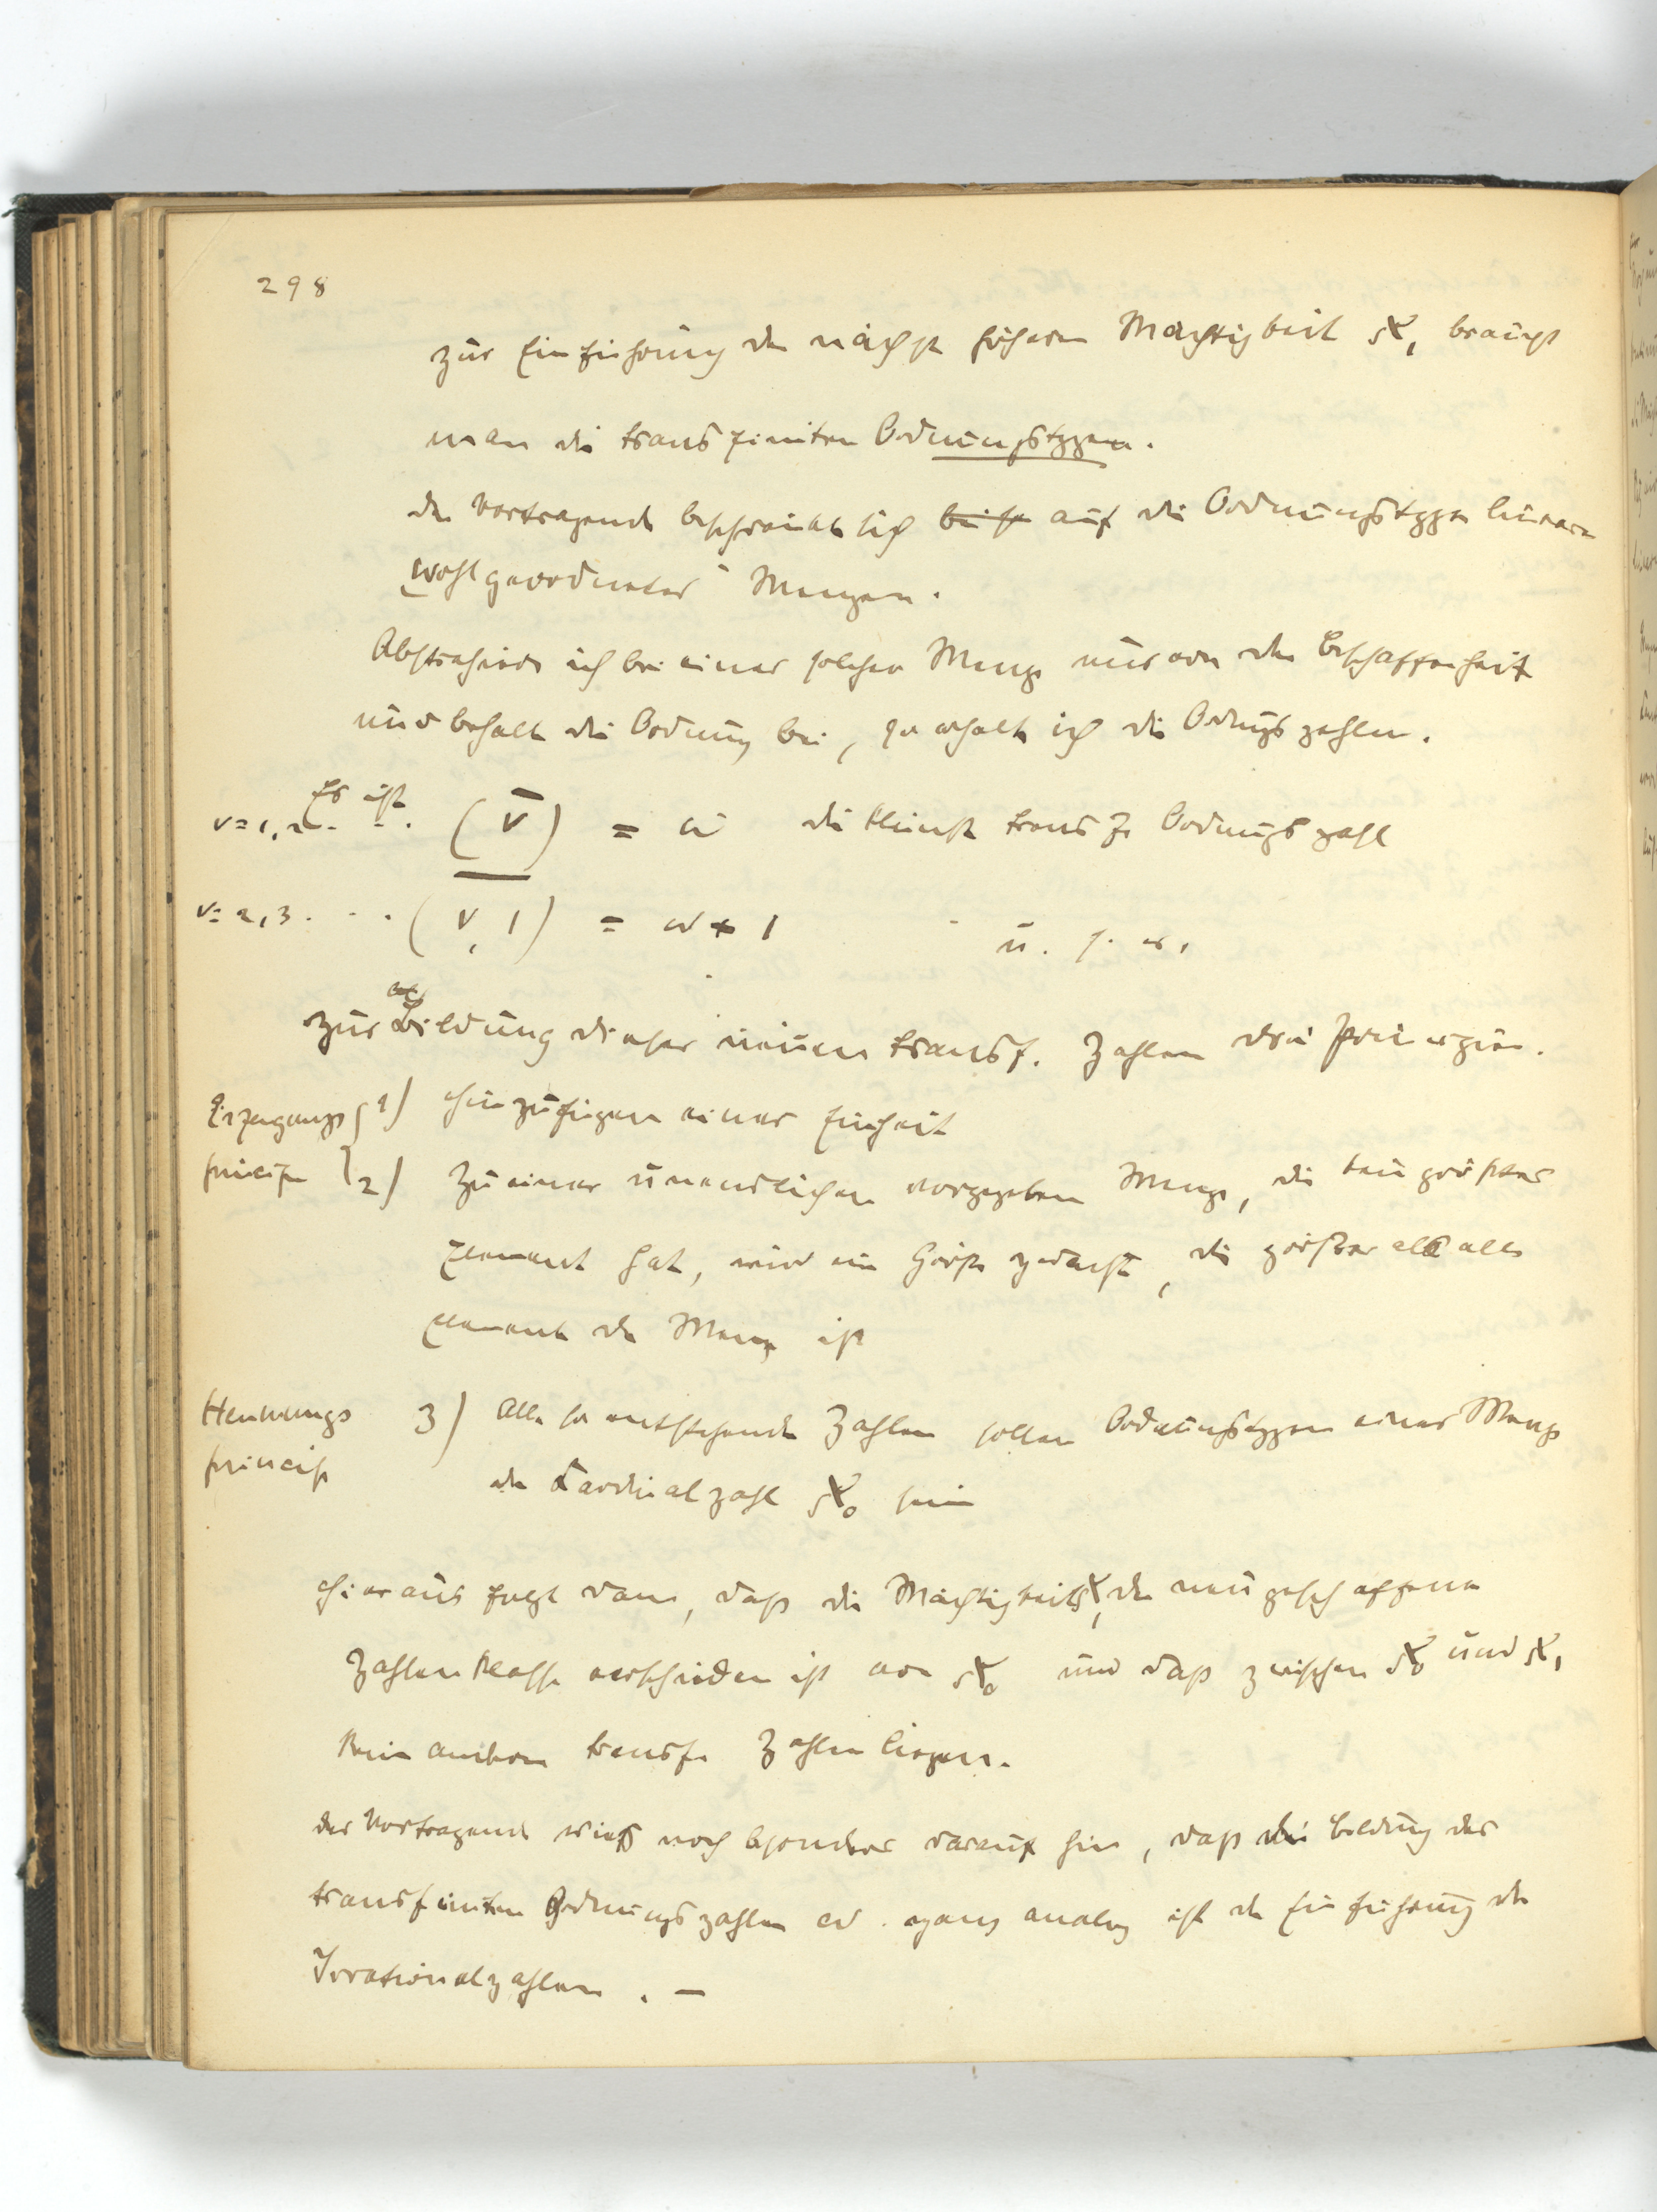 298
zur Einführung der nächst höheren Mächtigkeit ℵ₁ braucht
man die transfiniten Ordnungstypen.
der Vortragende beschränkte sich auf die Ordnungstypen linearer
wohlgeordneter Mengen.
Abstrahiere ich bei einer solchen Menge nur von der Beschaffenheit
und behalte die Ordnung bei, so erhalte ich die Ordnungszahlen.
Es ist
v=1,2 . . . (v̄) = ω die kleinste transf. Ordnungszahl
v=2,3 . . . (v, 1) = ω+1 u. s. w.
zur Bildung dieser neuen transf. Zahlen drei Principien.
Erzeugungs { 1) Hinzufügen einer Einheit
princip { 2) Zu einer unendlichen vorgegebenen Menge, die kein größtes
Element hat, wird eine Größe gedacht, die größer als alle
Elemente der Menge ist
Hemmungs 3) Alle so entstehende Zahlen sollen Ordnungstypen einer Menge
princip der Cardinalzahl ℵ₀ sein
Hieraus folgt dann, daß die Mächtigkeit ℵ₁ der neugeschaffenen
Zahlenklasse verschieden ist von ℵ₀ und daß zwischen ℵ₀ und ℵ₁
keine anderen transf. Zahlen liegen.
der Vortragende wies noch besonders darauf hin, daß die Bildung der
transfiniten Ordnungszahlen ω ganz analog ist der Einführung der
Irrationalzahlen. –